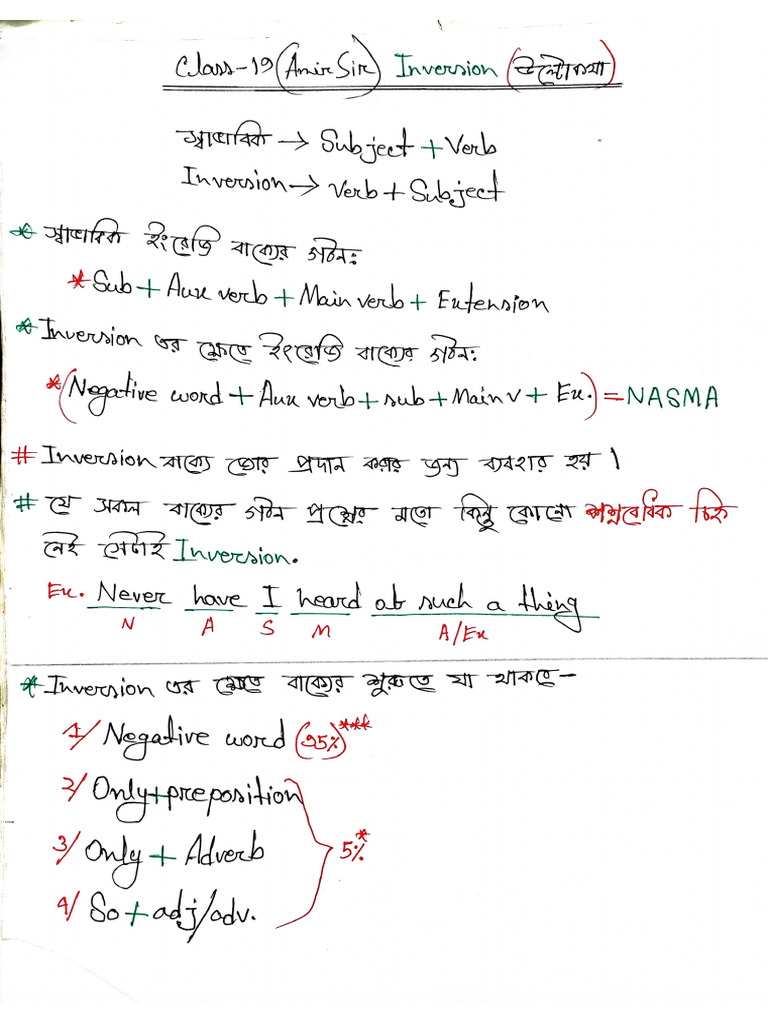 Class-19 (Amir Sir) Inversion (উল্টোকথা)
স্বাভাবিক → Subject + Verb
Inversion → Verb + Subject
* স্বাভাবিক ইংরেজি বাক্যের গঠন:
* Sub + Aux verb + Main verb + Extension
* Inversion এর ক্ষেত্রে ইংরেজি বাক্যের গঠন:
* (Negative word + Aux verb + sub + Main v + Ex.) = NASMA
# Inversion বাক্যে জোর প্রদান করার জন্য ব্যবহার হয়।
# যে সকল বাক্যের গঠন প্রশ্নের মতো কিন্তু কোনো প্রশ্নবোধক চিহ্ন
নেই সেটাই Inversion.
Ex. Never have I heard of such a thing
N A S M A/Ex
* Inversion এর ক্ষেত্রে বাক্যের শুরুতে যা থাকবে-
1/ Negative word (95%)***
2/ Only+preposition
3/ Only + Adverb 5%*
4/ So + adj/adv.